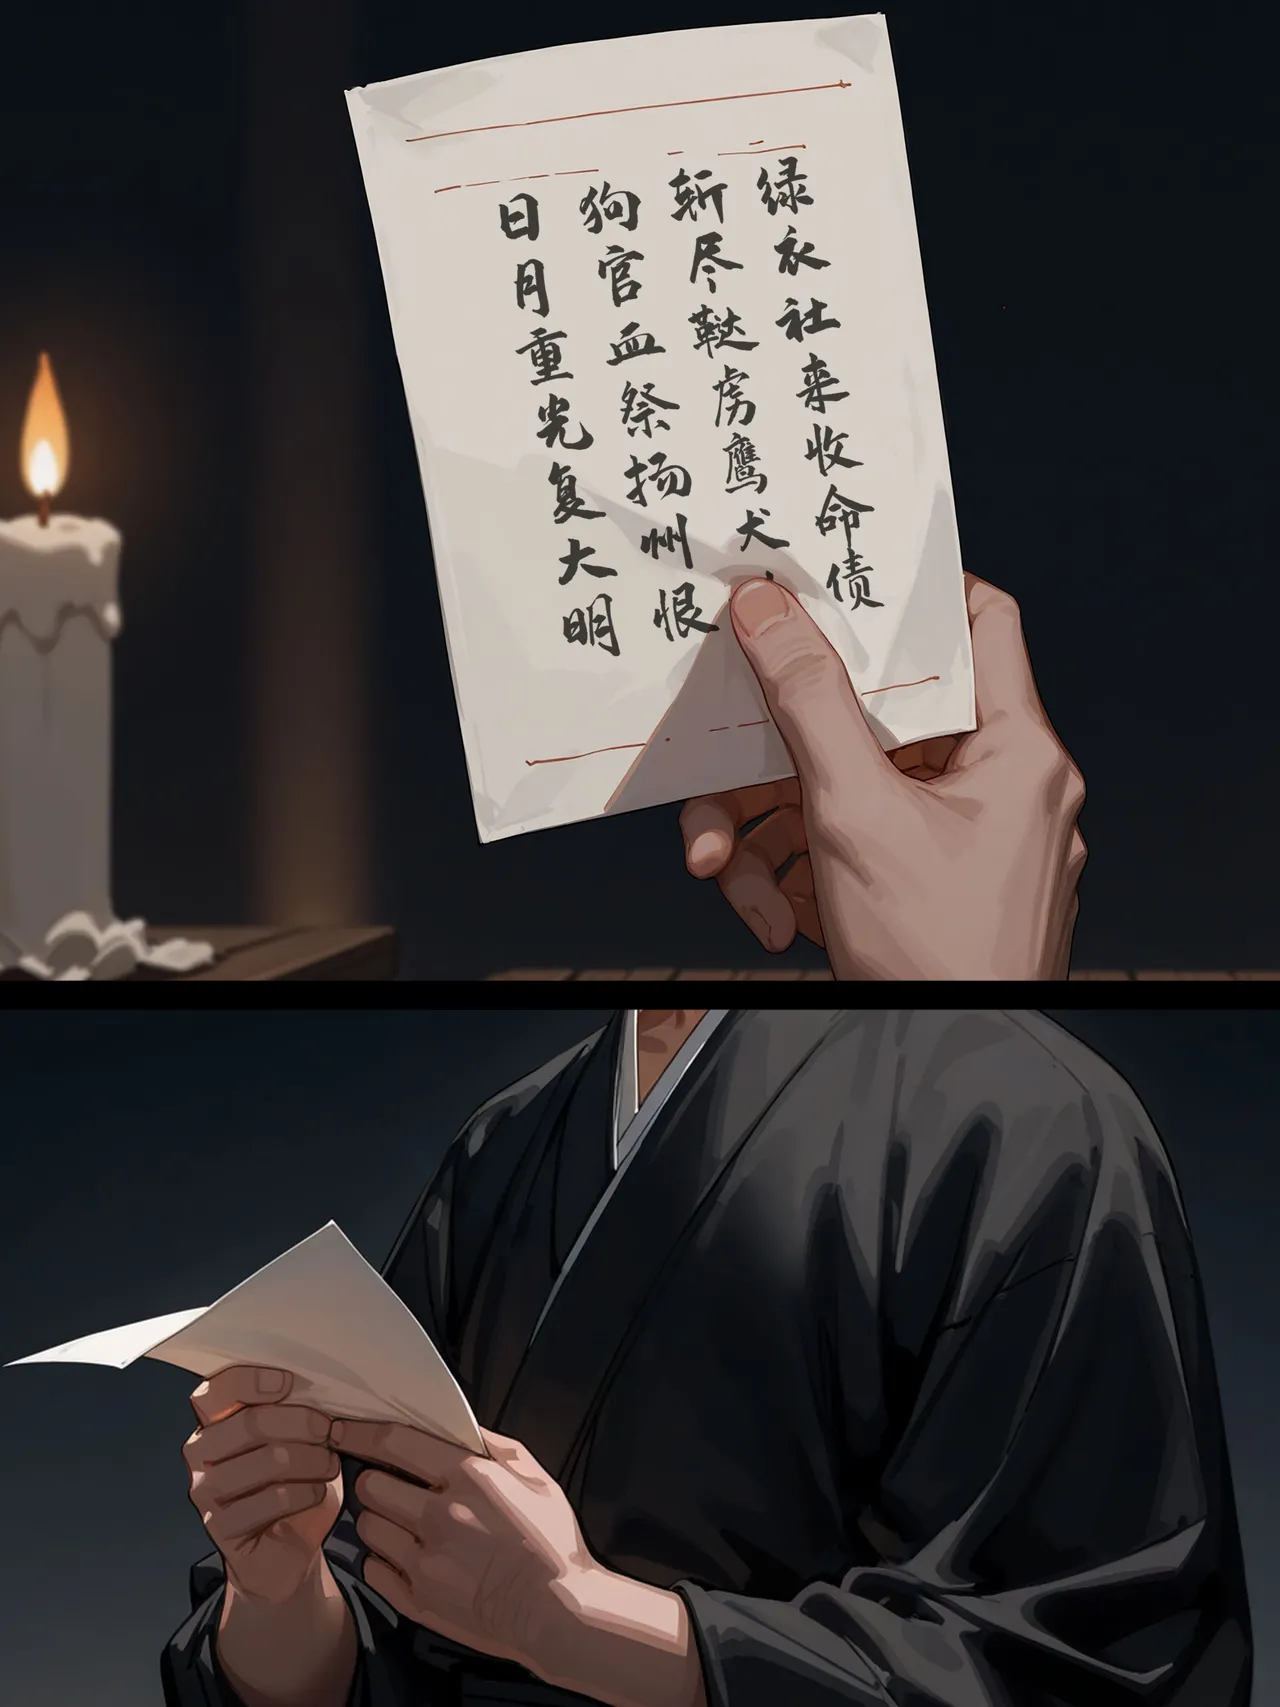 绿衣社来收命债
斩尽鞑虏鹰犬
狗官血祭扬州恨
日月重光复大明